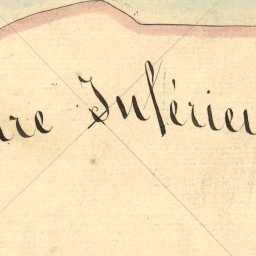 re Inférieu